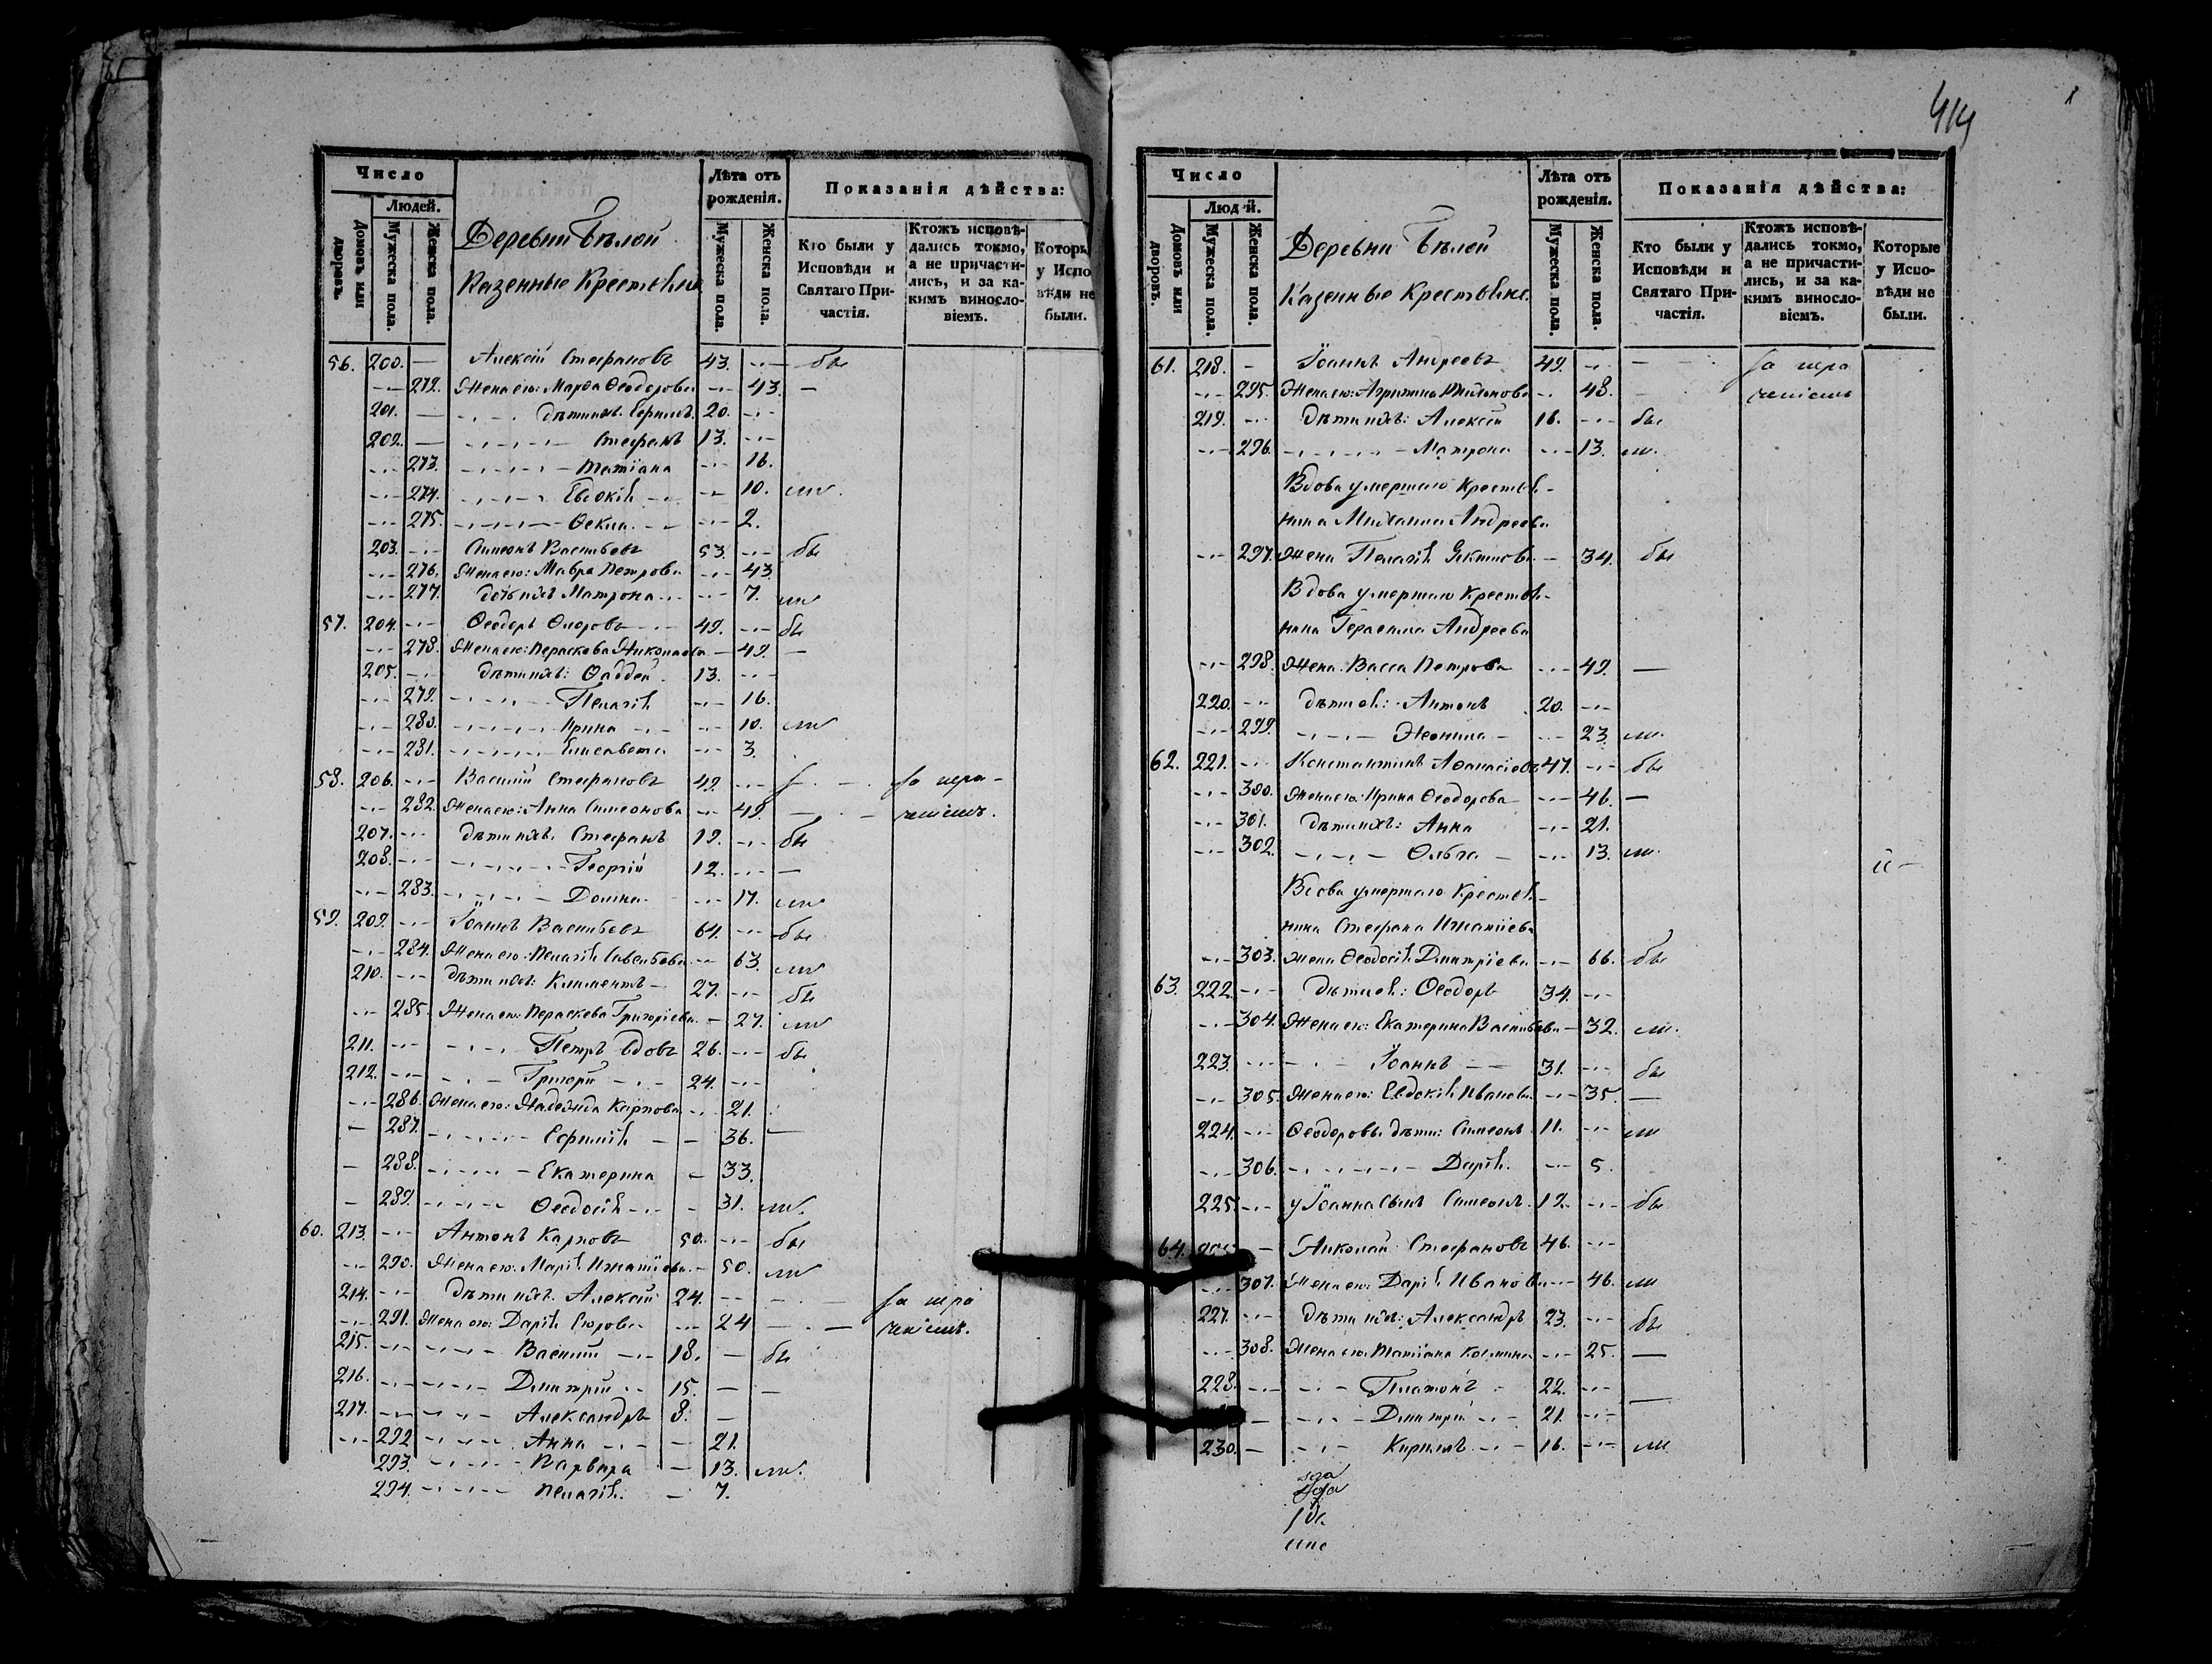 414
Число
Людей.
Домовъ или дворовъ.
Мужеска пола.
Женска пола.
Деревни Бѣлой
Казенные Крестьяне
Лѣта отъ рожденія.
Мужеска пола.
Женска пола.
Показанія дѣйства:
Кто были у Исповѣди и Святаго Причастія.
Ктожъ исповѣдались токмо, а не причастились, и за какимъ винословіемъ.
Которы у Испо вѣди не были.
56. 200. — Алексій Стефановъ 43. бы
272. Жена его: Марѳа Ѳеодорова 43. —
201. — дѣти ихъ: 20.
202. — Стефанъ 13.
273. Татіана 16.
274. Евдокія 10. ли
275. Ѳекла 2.
203. Симеонъ Васильевъ 53. бы
276. Жена его: Мавра Петрова 43.
277. дочь ихъ Матрона 7. ли
57. 204. Ѳеодоръ 49. бы
278. Жена его: Параскева Николаева 49. —
205. дѣти ихъ: Ѳаддей 13.
279. Пелагія 16.
280. Ирина 10. ли
281. Елисавета 3.
58. 206. Василій Стефановъ 49. за нера-
282. Жена его: Анна Симеонова 49. — ченіемъ.
207. дѣти ихъ: Стефанъ 19. бы
208. Георгій 12. —
283. Домна 17. ли
59. 209. Іоаннъ Васильевъ 64. бы
284. Жена его: Пелагія Савельева 63. ли
210. дѣти ихъ: Климентъ 27. бы
285. Жена его: Параскева Григорієва 27. ли
211. Петръ вдовъ 26. бы
212. Григорій 24.
286. Жена его: Надежда Карпова 21.
287. Евфимія 36. —
288. Екатерина 33.
289. Ѳеодосія 31. ли.
60. 213. Антонъ Карповъ 50. бы
290. Жена его: Марія Игнатіева 50. ли
214. дѣти ихъ: Алексій 24. за нера
291. Жена его: Дарія 24 — ченіемъ.
215. Василій 18. — бы
216. Димитрій 15. — —
217. Александръ 8. —
292 Анна 21.
293. Варвара 13. ли.
294. Пелагія 7.
Число
Люд й.
Домовъ или дворовъ.
Мужеска пола.
Женска пола.
Деревни Бѣлой
Казенные Крестьяне.
Лѣта отъ рожденія.
Мужеска пола.
Женска пола.
Показанія дѣйства:
Кто были у Исповѣди и Святаго Причастія.
Ктожъ исповѣдались токмо, а не причастились, и за какимъ винословіемъ.
Которые у Исповѣди не были.
61. 218. — Іоаннъ Андреевъ 49. — за нера
295. Жена его: 48. ченіемъ
219. Дѣти ихъ: Алексій 16. бы
296. Матрона 13. ли.
Вдова умершаго Крестья-
нина Михаила Андреева
297. Жена Пелагія 34. бы
Вдова умершаго Крестья-
нина Герасима Андреева
298. Жена: Васса Петрова 49. —
220. Дѣти ея: Антонъ 20.
299. 23. ли.
62. 221. Константинъ Аѳанасіевъ 47. бы
300. Жена его: Ирина Ѳеодорова 46. —
301. Дѣти ихъ: Анна 21.
302. Ольга 13. ли.
Вдова умершаго Крестья-
нина Стефана Игнатіева
303. жена Ѳеодосія Димитріева 66. бы
63. 222. Дѣти ея: Ѳеодоръ 34.
304. Жена его: Екатерина Васильева 32. ли.
223. Іоаннъ 31. бы
305. Жена его: Евдокія Иванова 35. —
224. Ѳеодоровы дѣти: Симеонъ 11. ли
306. Дарія 5.
225. у Іоанна сынъ Симеонъ 12. бы
64. Николай Стефановъ 46.
307. Жена его: Дарія Иванова 46. ли
227. Дѣти ихъ: Александръ 23. бы
308. Жена его: Татіана 25. —
228. Платонъ 22. —
Димитрій 21.
230. — Кириллъ 16. ли